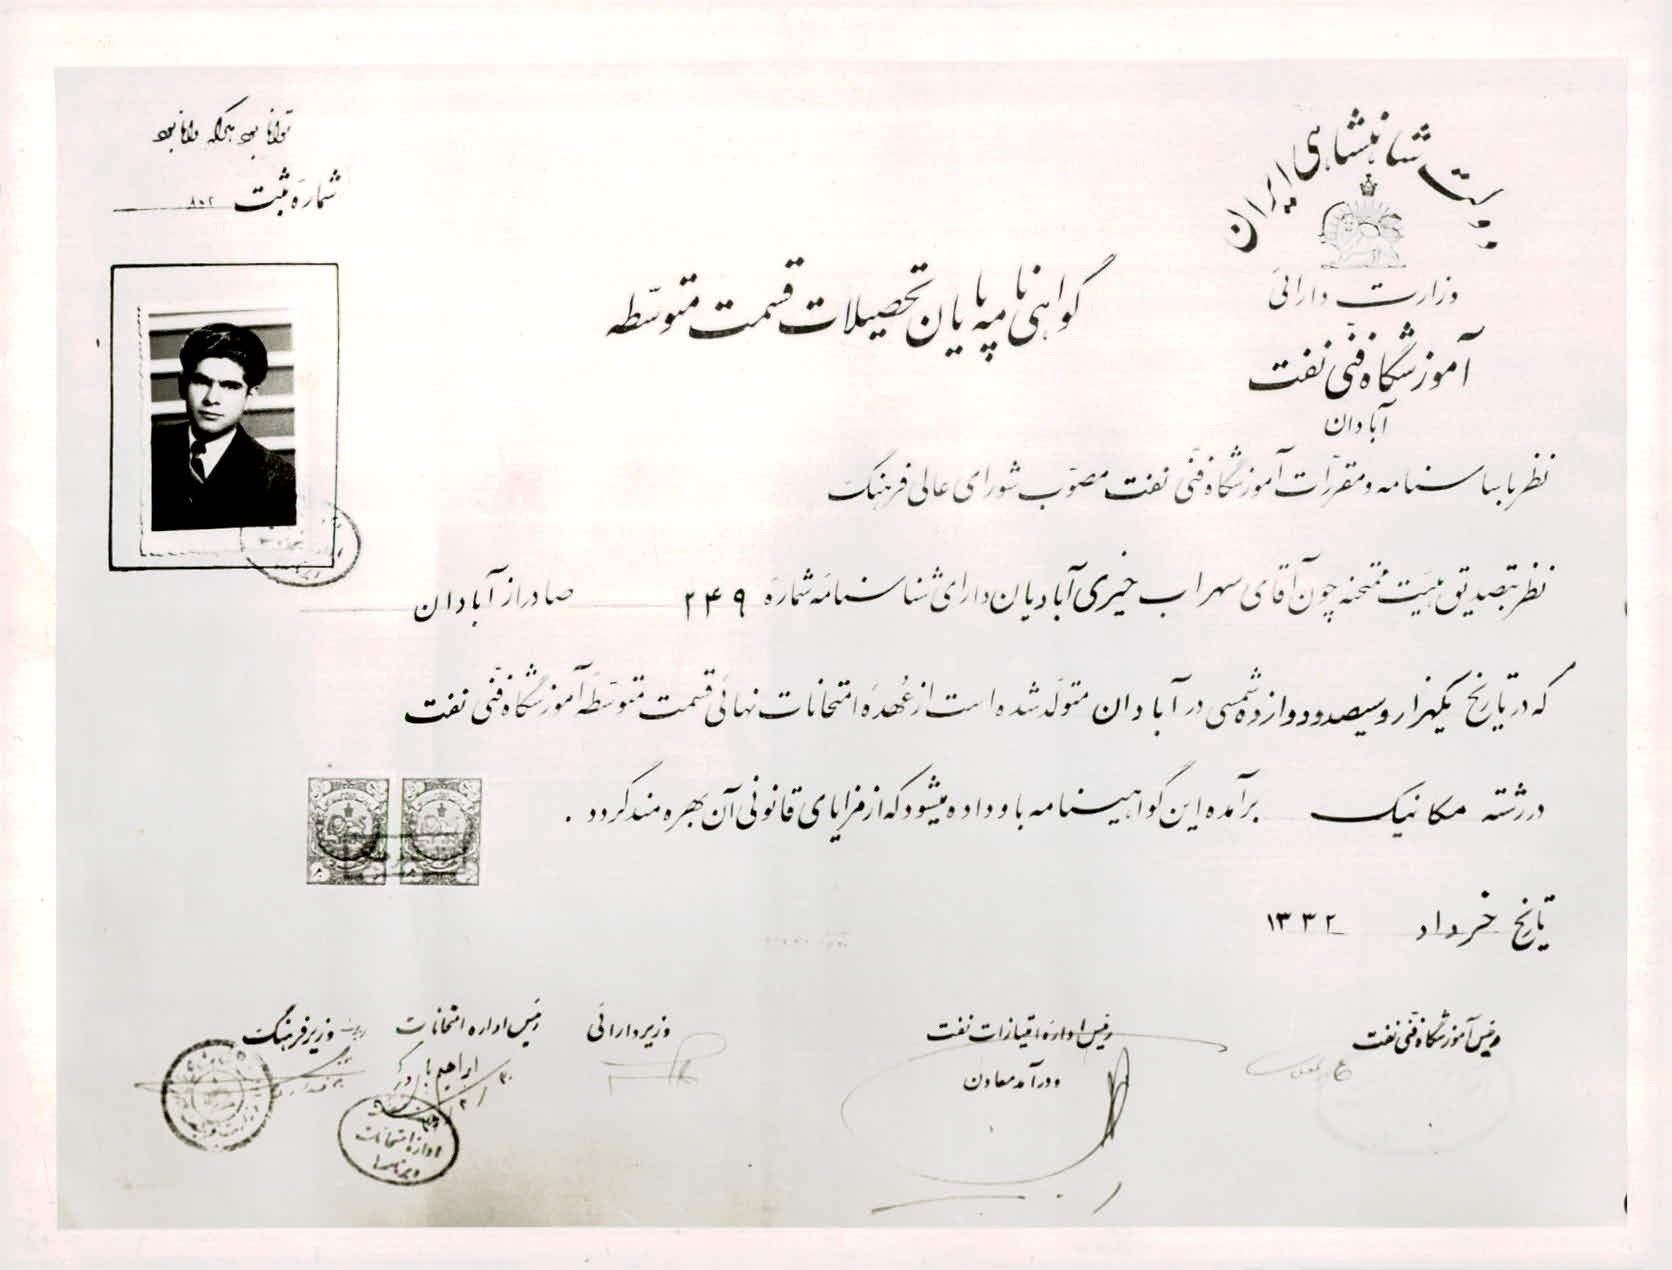 توانا بود هرکه دانا بود
شماره ثبت ۸۰۲
شاهنشاهی ایران
وزارت دارائی
آموزشگاه فنّی نفت
آبادان
گواهی نامه پایان تحصیلات قسمت متوسّطه
نظر باساسنامه و مقرّرات آموزشگاه فنّی نفت مصوّب شورای عالی فرهنگ
نظر بتصدیق هیئت ممتحنه چون آقای سهراب خیری آبادیان دارای شناسنامه شماره ۲۴۹ صادر از آبادان
که در تاریخ یکهزار و سیصد و دوازده شمسی در آبادان متولّد شده است از عُهدهٔ امتحانات نهائی قسمت متوسّطه آموزشگاه فنّی نفت
در رشته مکانیک برآمده این گواهینامه باو داده میشود که از مزایای قانونی آن بهره مند گردد .
تاریخ خرداد ۱۳۳۲
رئیس آموزشگاه فنّی نفت
رئیس اداره امتیازات نفت
و درآمد معادن
وزیر دارائی
رئیس اداره امتحانات
وزیر فرهنگ
ابراهیم
اداره امتحانات
و برنامه‌ها